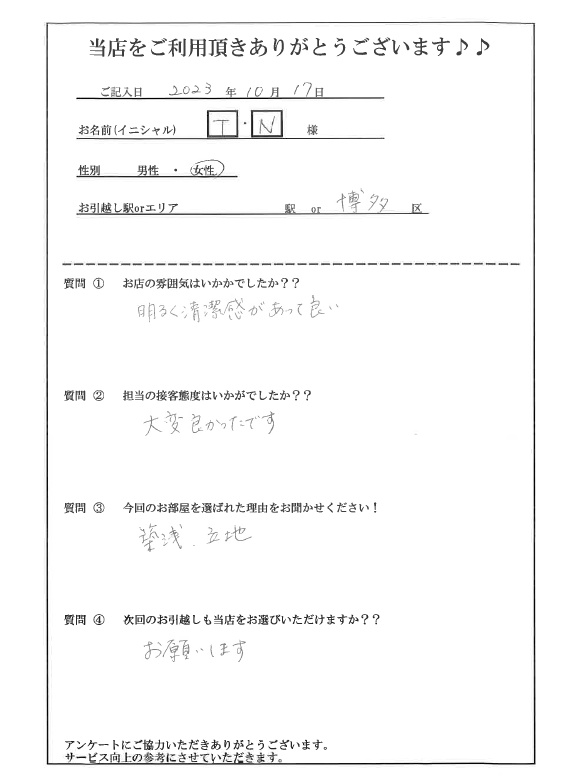 当店をご利用頂きありがとうございます♪♪
ご記入日 2023 年 10 月 17 日
お名前(イニシャル) T・N 様
性別 男性 ・ 女性
お引越し駅orエリア 駅 or 博多 区
質問 ① お店の雰囲気はいかかでしたか??
明るく清潔感があって良い
質問 ② 担当の接客態度はいかがでしたか??
大変良かったです
質問 ③ 今回のお部屋を選ばれた理由をお聞かせください!
築浅、立地
質問 ④ 次回のお引越しも当店をお選びいただけますか??
お願いします
アンケートにご協力いただきありがとうございます。
サービス向上の参考にさせていただきます。